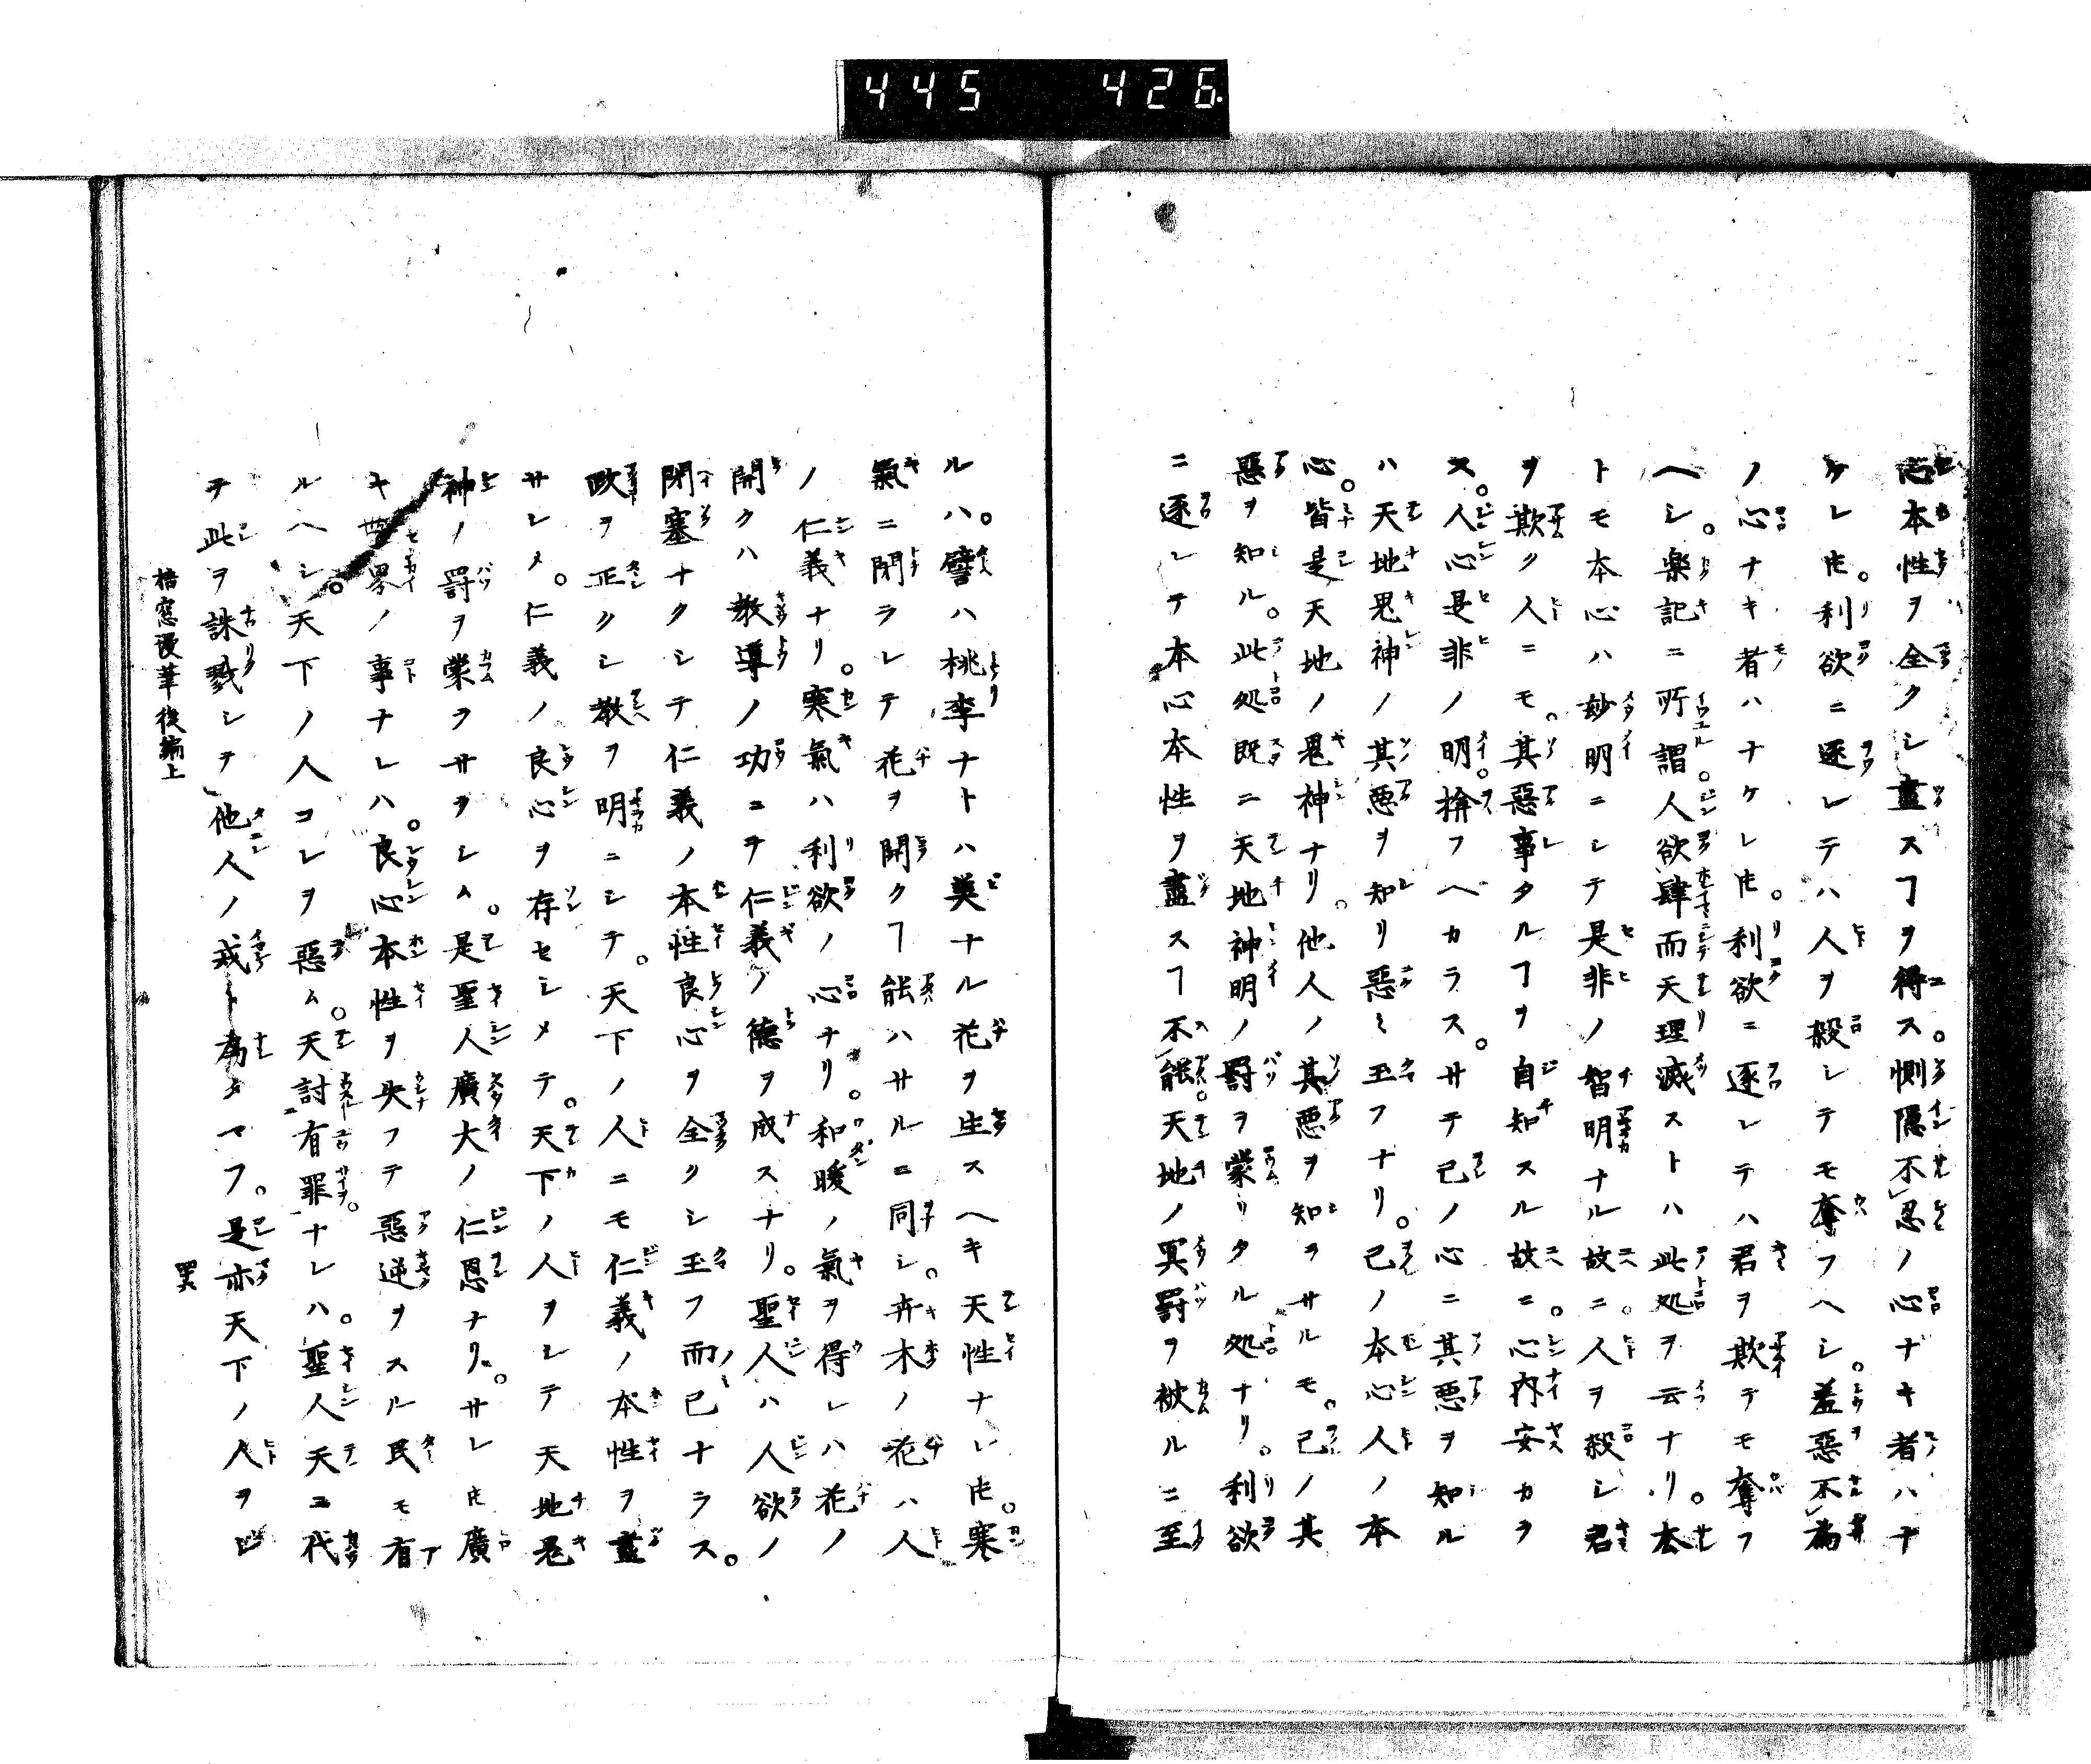 445 426
心本性ヲ全クシ盡スヿヲ得ス。惻隱不忍ノ心ナキ者ハナ
ケレ𪜈。利欲ニ逐レテハ人ヲ殺シテモ奪フヘシ。羞惡不為
ノ心ナキ者ハナケレ𪜈。利欲ニ逐レテハ君ヲ欺テモ奪フ
ヘシ。楽記ニ所謂。人欲肆而天理滅ストハ此処ヲ云ナリ。然レ
トモ本心ハ妙明ニシテ是非ノ智明ナル故ニ。人ヲ殺シ君
ヲ欺ク人ニモ。其惡事タルヿヲ自知スル故ニ。心内安カラ
ス。人心是非ノ明。揜フヘカラス。サテ己ノ心ニ其悪ヲ知ル
ハ天地鬼神ノ其悪ヲ知リ惡ミ玉フナリ。己ノ本心人ノ本
心。皆是天地ノ鬼神ナリ。他人ノ其悪ヲ知ラサルモ。己ノ其
惡ヲ知ル。此処既ニ天地神明ノ罸ヲ蒙リタル処ナリ。利欲
ニ逐レテ本心本性ヲ盡スヿ不能。天地ノ冥罸ヲ被ルニ至
ルハ。譬ハ桃李ナトハ美ナル花ヲ生スヘキ天性ナレ𪜈。寒
氣ニ閉ラレテ花ヲ開クヿ能ハサルニ同シ。卉木ノ花ハ人
ノ仁義ナリ。寒氣ハ利欲ノ心ナリ。和暖ノ氣ヲ得レハ花ノ
開クハ教導ノ功ニヲ仁義ノ德ヲ成スナリ。聖人ハ人欲ノ
閉塞ナクシテ仁義ノ本性良心ヲ全クシ玉フ而已ナラス。
政ヲ正クシ教ヲ明ニシテ。天下ノ人ニモ仁義ノ本性ヲ盡
サシメ。仁義ノ良心ヲ存セシメテ。天下ノ人ヲシテ天地鬼
神ノ罸ヲ蒙ラサラシム。是聖人廣大ノ仁恩ナリ。サレ𪜈廣
キ世界ノ事ナレハ。良心本性ヲ失フテ惡逆ヲスル民モ有
ルヘシ。天下ノ人コレヲ惡ム。天討有罪ナレハ。聖人天ニ代
テ此ヲ誅戮シテ他人ノ戒ト為タマフ。是亦天下ノ人ヲシ
梧窓漫筆後編上